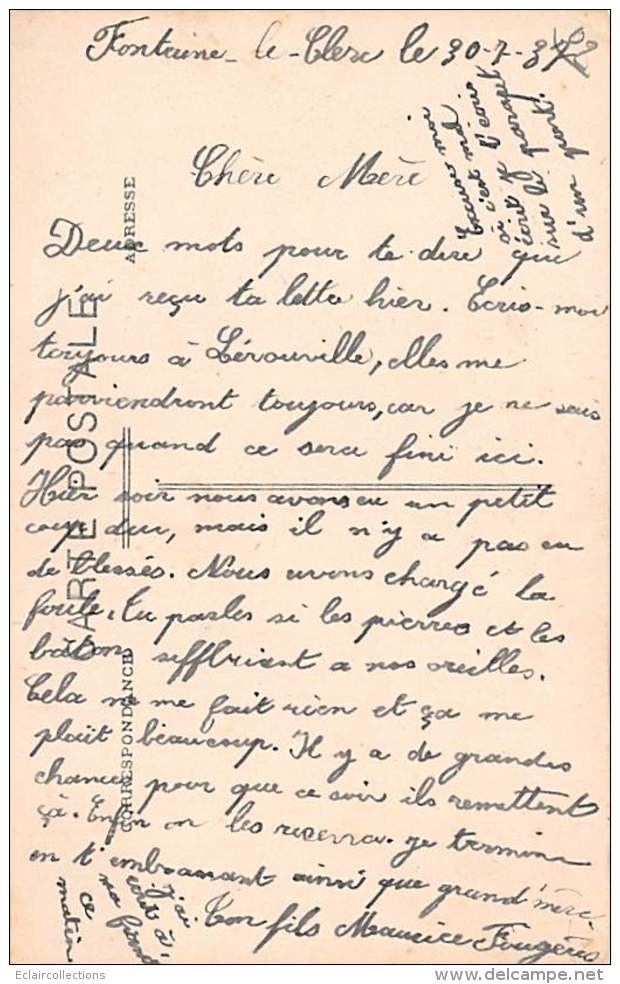 Fontaine-le-Clerc le 30-7-3
Chère Mère
Excuses moi
c'est mal
écrit
sur le
d'un pont.
Deux mots pour te dire que
j'ai reçu ta lettre hier. Ecris-moi
toujours à Lérouville, elles me
parviendront toujours, car je ne sais
pas quand ce sera fini ici.
Hier soir nous avons eu un petit
coup dur, mais il n'y a pas eu
de blessés. Nous avons chargé la
foule, tu parles si les pierres et les
bâtons siffltaient a nos oreilles.
Cela ne me fait rien et ça me
plaît beaucoup. Il y a de grandes
chances pour que ce soir ils remettent
ça. Enfin on les recevra. Je termine
en t'embrassant ainsi que grand'mère.
Ton fils Maurice Fougères
J'ai
écrit à
ce
matin
CARTE POSTALE
CORRESPONDANCE
ADRESSE
Eclaircollections
delcampe.net